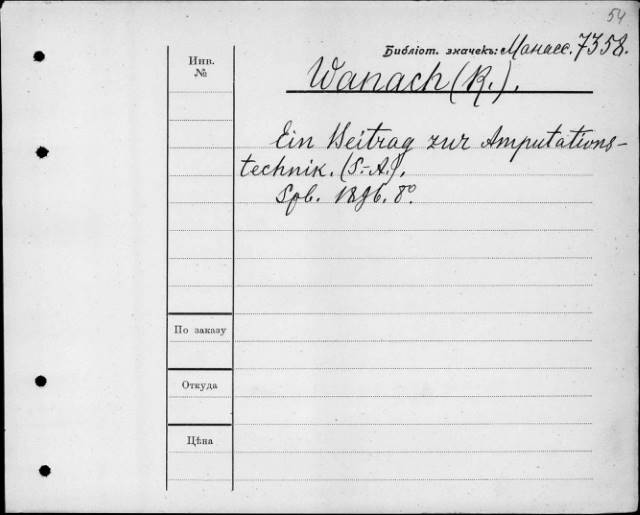 54
Библіот. значекъ: Манасс. 7358.
Инв.
№
Wanach (R.).
Ein Beitrag zur Amputations-
technik. (S.-A.).
Spb. 1896. 8°.
По заказу
Откуда
Цѣна